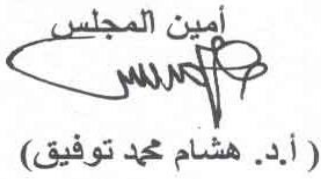 أمين المجلس
( أ.د. هشام محمد توفيق)